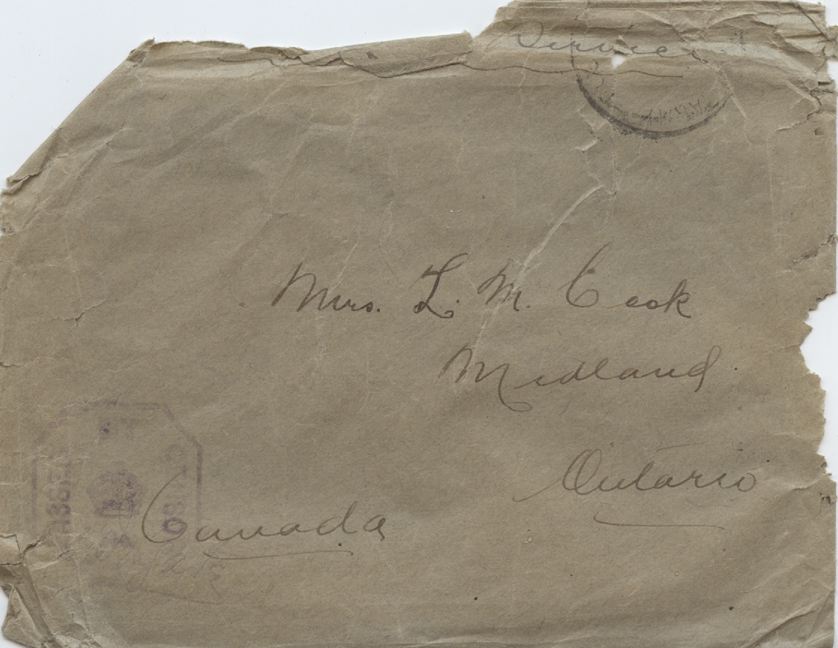 Service
Mrs. L. M. Cook
Midland
Ontario
Canada